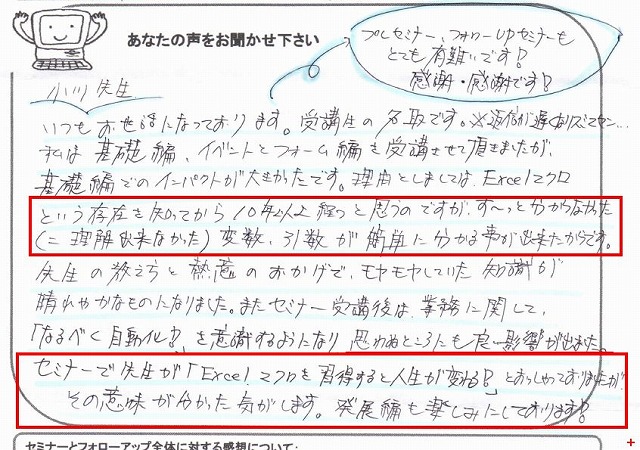 あなたの声をお聞かせ下さい
プレセミナー、フォローUPセミナーも
とても有難いです!
感謝・感謝です!
小川先生
いつもお世話になっております。受講生の名取です。※返信が遅くなりスミマセン…
私は基礎編、イベントとフォーム編を受講させて頂きましたが、
基礎編でのインパクトが大きかったです。理由としましては、Excelマクロ
という存在を知ってから10年以上経つと思うのですが、す〜っと分からなかった
(=理解出来なかった)変数、引数が簡単に分かる事が出来たからです。
先生の教え方と熱意のおかげで、モヤモヤしていた知識が
晴れやかなものになりました。またセミナー受講後は、業務に関して、
「なるべく自動化!」を意識するようになり思わぬところにも良い影響が出ました。
セミナーで先生が「Excelマクロを習得すると人生が変わる!」とおっしゃっておりましたが、
その意味が分かった気がします。発展編も楽しみにしております!
セミナーとフォローアップ全体に対する感想について: